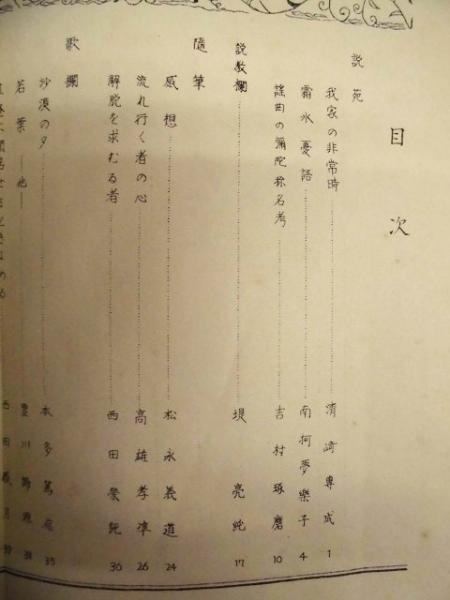 目次
説苑
我家の非常時 清崎專成 1
霜氷憂語 南柯夢樂子 4
謡曲の彌陀称名考 吉村琢磨 10
説教欄 堤亮純 17
随筆
感想 松永義道 24
流れ行く者の心 高雄孝準 26
解脱を求むる者 西田 30
歌欄
沙漠の夕 本多 35
若葉 ―他― 豊川
西田